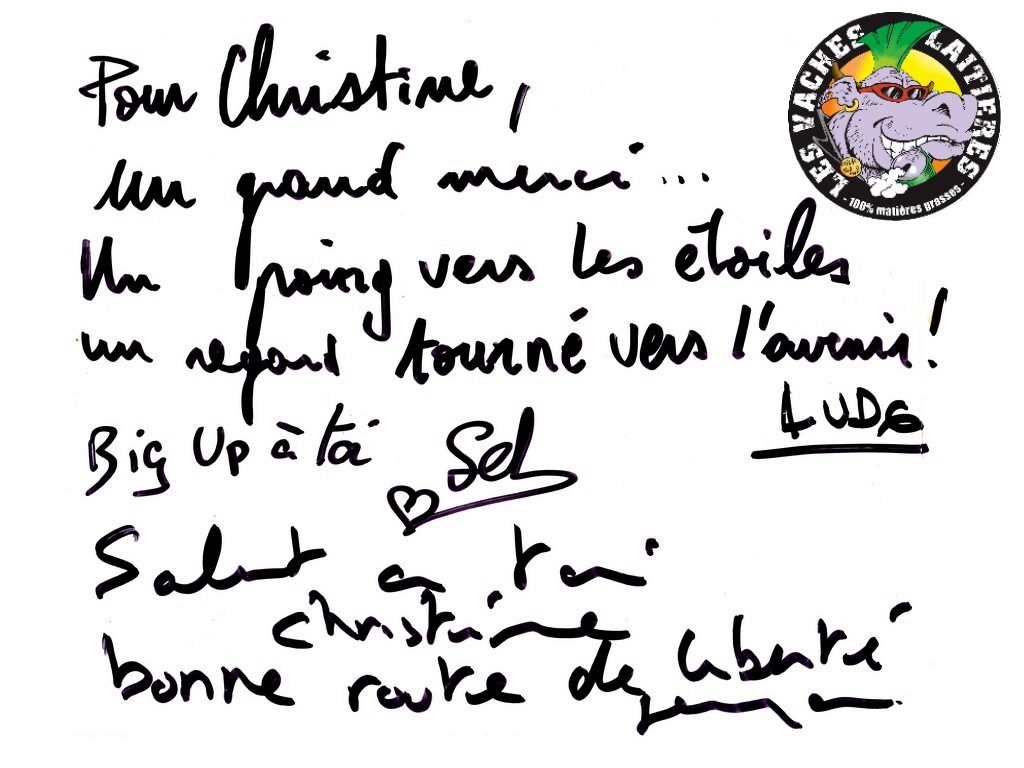 Pour Christine,
un grand merci...
Un poing vers les étoiles
un regard tourné vers l'avenir!
LUDO
Big Up à toi
Seb
Salut a toi
christine
bonne route de liberté
LES VACHES LAITIERES
- 100% matières grasses -